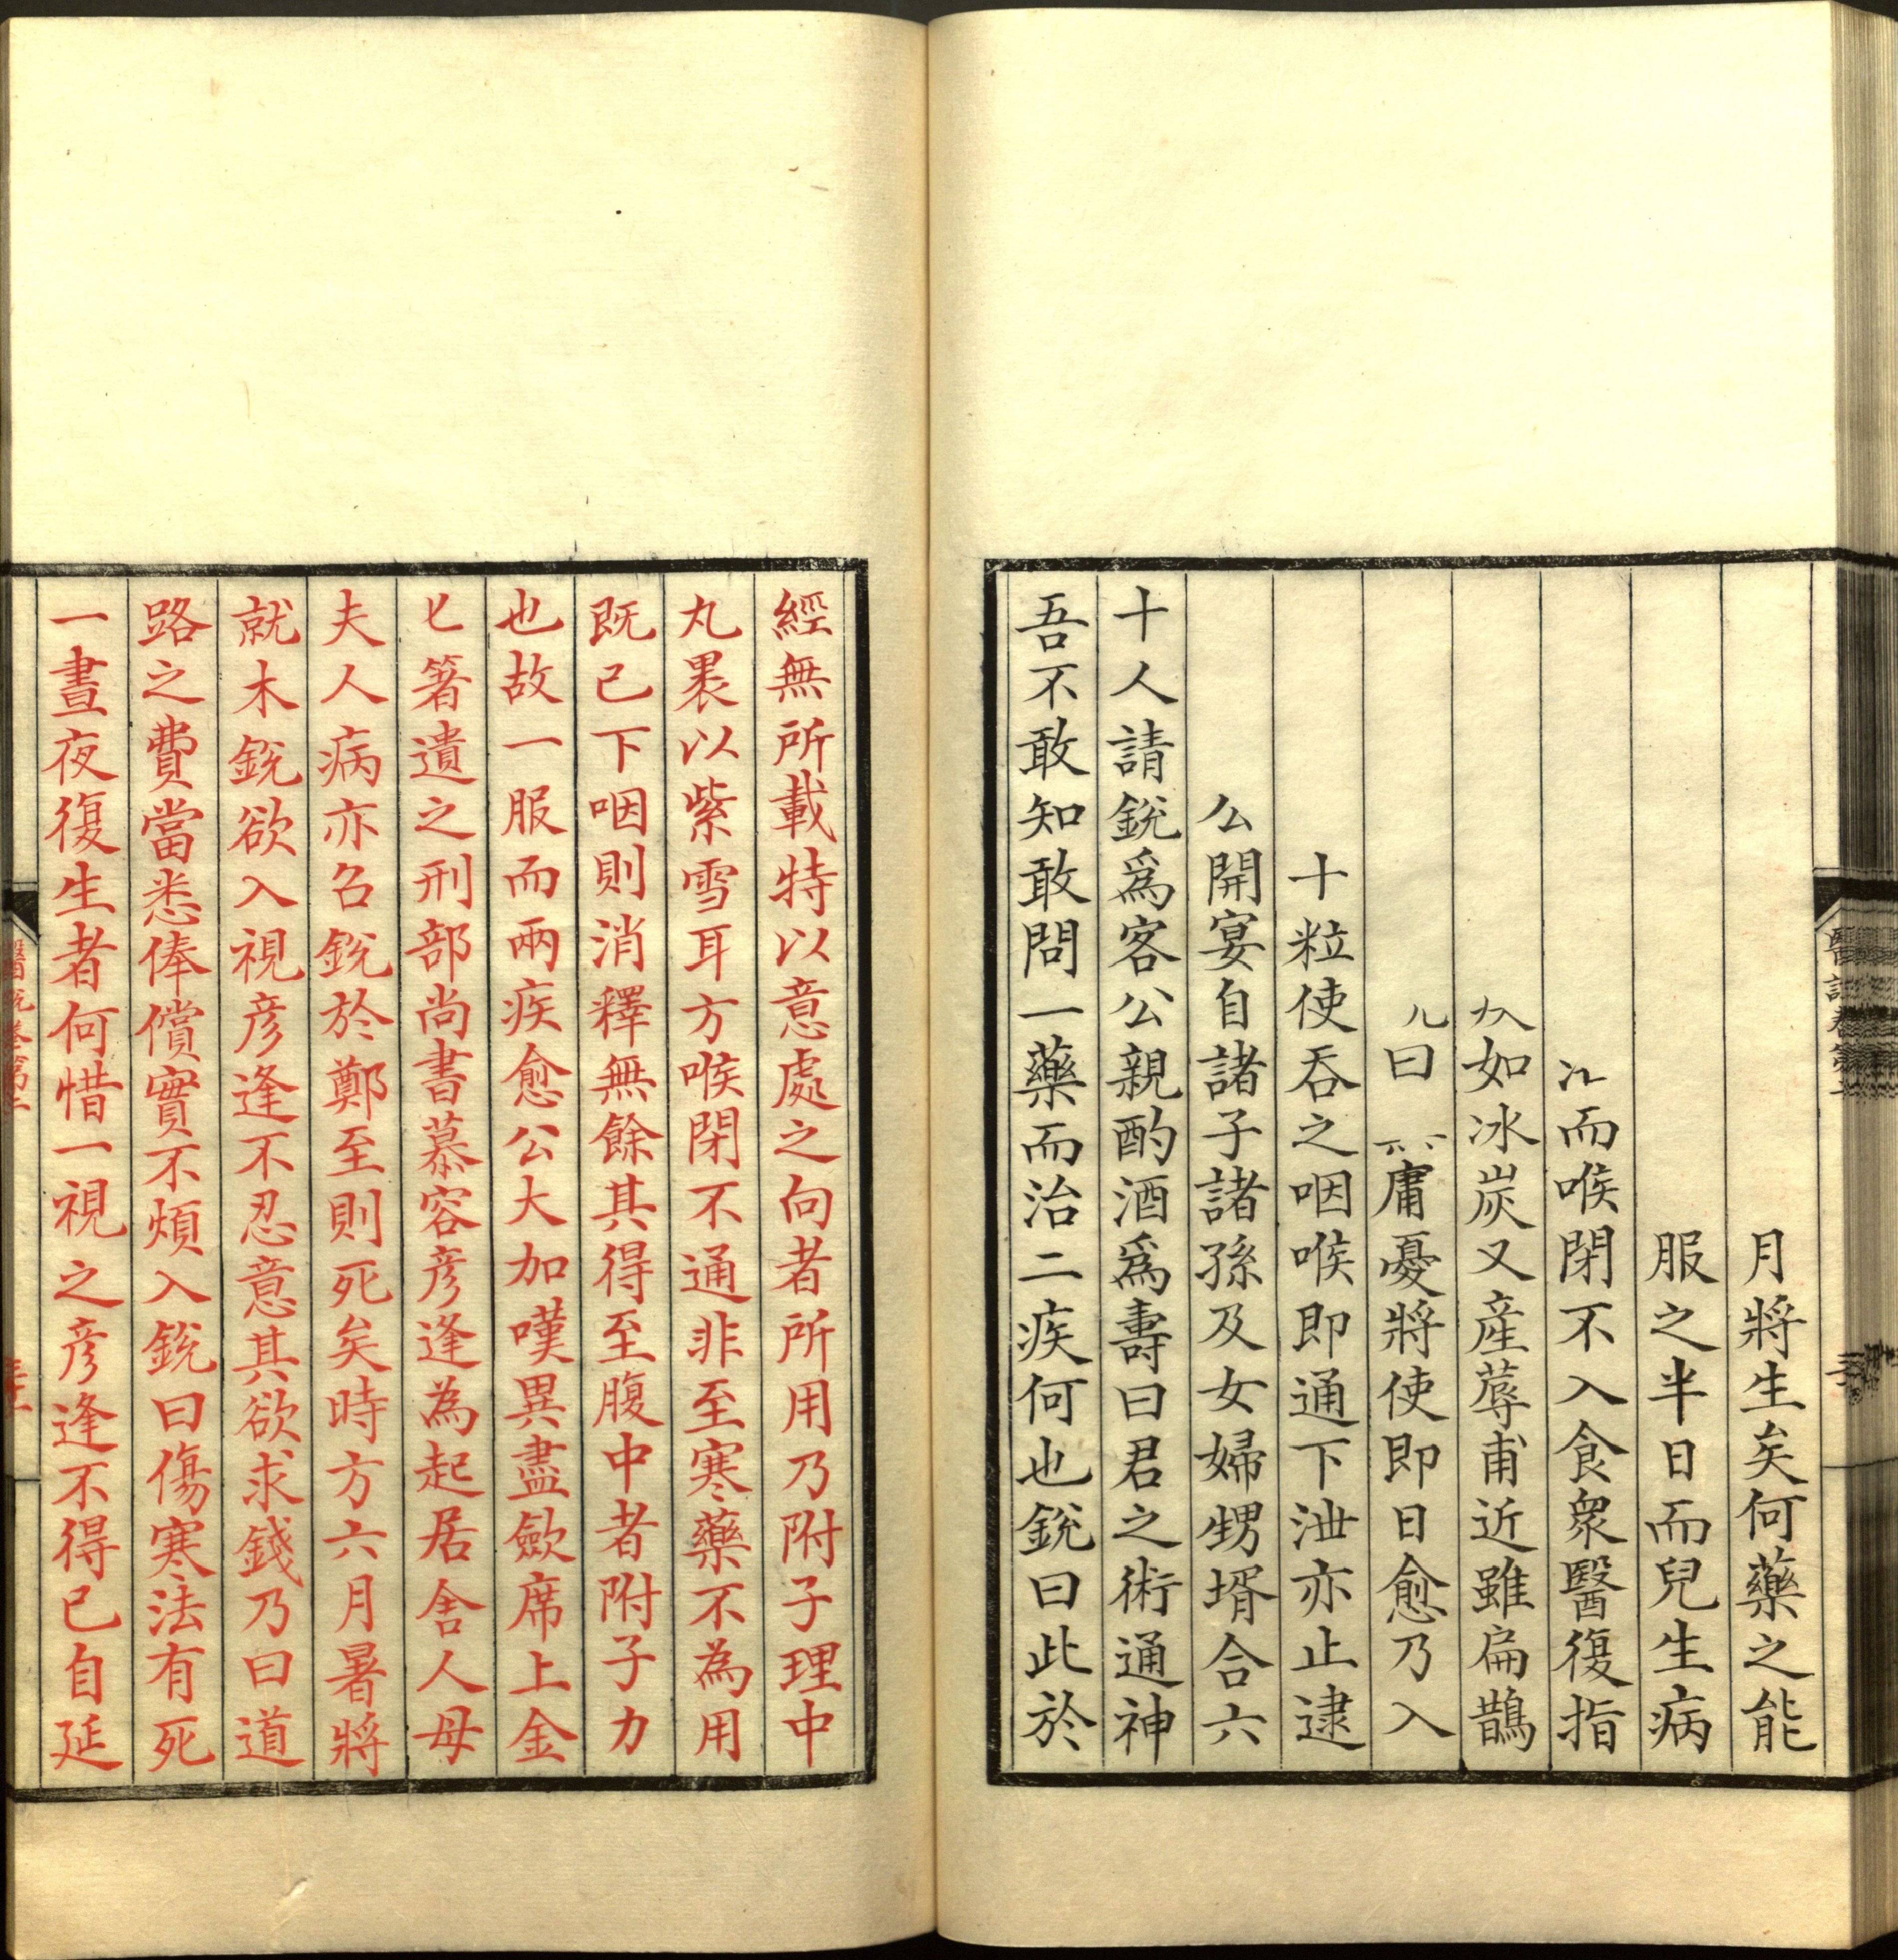 月將生矣何藥之能
服之半日而兒生病
而喉閉不入食衆醫復指
如冰炭又產蓐甫近雖扁鵲
曰 庸憂將使即日愈乃入
十粒使吞之咽喉即通下泄亦止逮
公開宴自諸子諸孫及女婦甥壻合六
十人請銳爲客公親酌酒爲壽曰君之術通神
吾不敢知敢問一藥而治二疾何也銳曰此於
經無所載特以意處之向者所用乃附子理中
丸褁以紫雪耳方喉閉不通非至寒藥不為用
既已下咽則消釋無餘其得至腹中者附子力
也故一服而兩疾愈公大加嘆異盡斂席上金
匕箸遺之刑部尚書慕容彦逢為起居舍人母
夫人病亦名銳於鄭至則死矣時方六月暑將
就木銳欲入視彦逢不忍意其欲求錢乃曰道
路之費當悉俸償實不煩入銳曰傷寒法有死
一晝夜復生者何惜一視之彦逢不得已自延